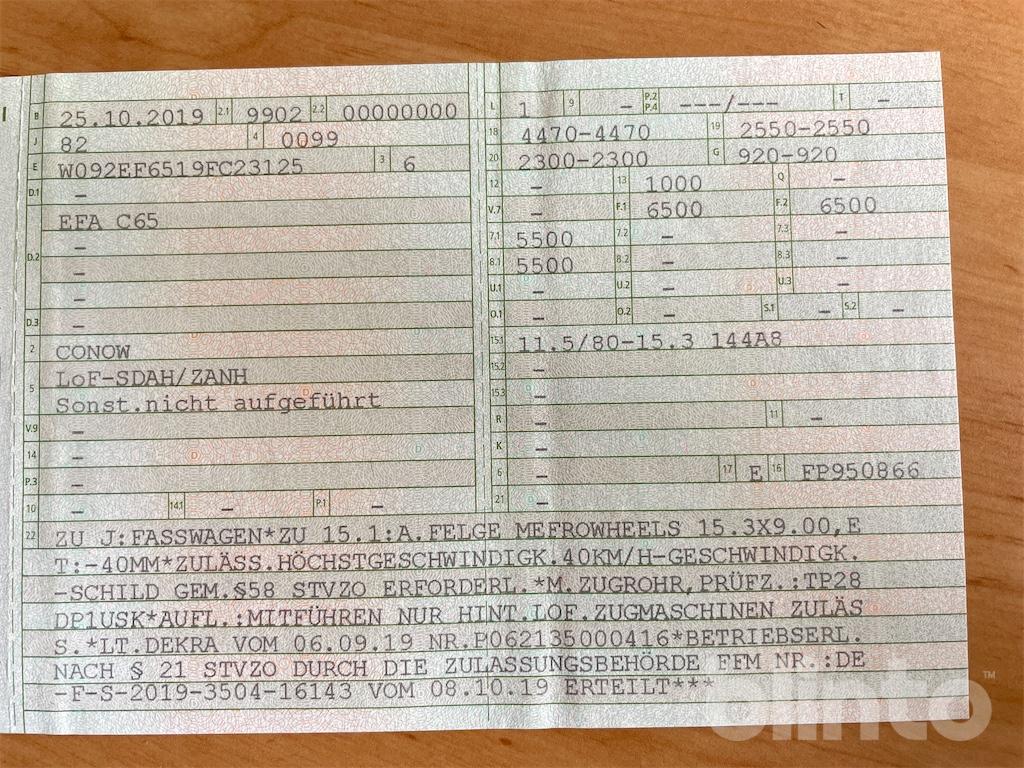 B 25.10.2019 2.1 9902 2.2 00000000
J 82 4 0099
E W092EF6519FC23125 3 6
D.1 –
D.2 EFA C65
–
–
–
D.3 –
2 CONOW
5 LoF-SDAH/ZANH
Sonst.nicht aufgeführt
V.9 –
14 –
P.3 –
10 – 14.1 – P.1 –
L 1 9 – P.2 P.4 ---/--- T –
18 4470-4470 19 2550-2550
20 2300-2300 G 920-920
12 – 13 1000 Q –
V.7 – F.1 6500 F.2 6500
7.1 5500 7.2 – 7.3 –
8.1 5500 8.2 – 8.3 –
U.1 – U.2 – U.3 –
O.1 – O.2 – S.1 – S.2 –
15.1 11.5/80-15.3 144A8
15.2 –
15.3 –
R – 11 –
K –
6 – 17 E 16 FP950866
21 –
22 ZU J:FASSWAGEN*ZU 15.1:A.FELGE MEFROWHEELS 15.3X9.00,E
T:-40MM*ZULÄSS.HÖCHSTGESCHWINDIGK.40KM/H-GESCHWINDIGK.
-SCHILD GEM.§58 STVZO ERFORDERL.*M.ZUGROHR,PRÜFZ.:TP28
DP1USK*AUFL.:MITFÜHREN NUR HINT.LOF.ZUGMASCHINEN ZULÄS
S.*LT.DEKRA VOM 06.09.19 NR.P062135000416*BETRIEBSERL.
NACH § 21 STVZO DURCH DIE ZULASSUNGSBEHÖRDE FFM NR.:DE
-F-S-2019-3504-16143 VOM 08.10.19 ERTEILT***
olinto™